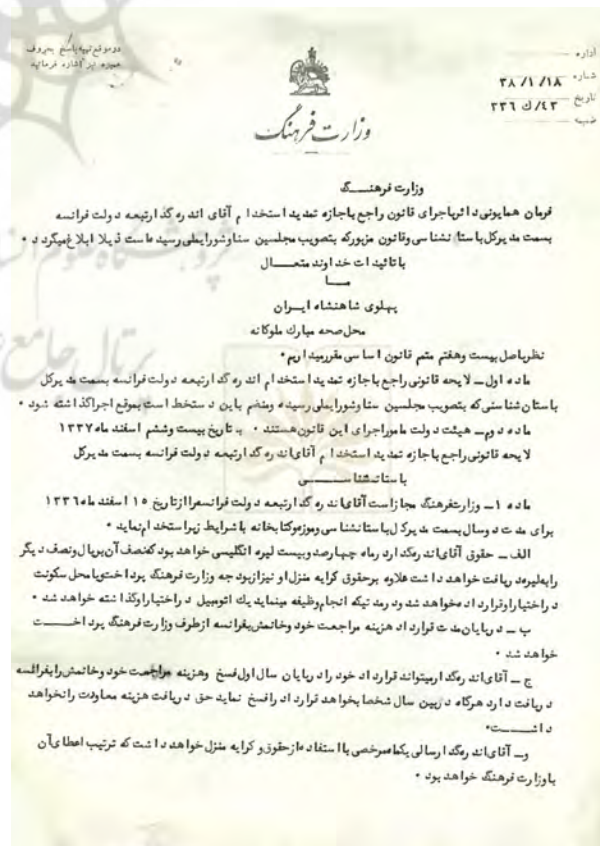 در موقع تهیه پاسخ بحروف
ممیزه نیز اشاره فرمائید
اداره
شماره ۳۸/۱/۱۸
تاریخ ۲۳۶ ك/۴۳
ضمیمه
وزارت فرهنگ
وزارت فرهنگ
فرمان همایونی دائر باجرای قانون راجع باجازه تمدید استخدام آقای اندره گدار تبعه دولت فرانسه
بسمت مدیر کل باستانشناسی وقانون مزبور که بتصویب مجلسین سنا وشورایملی رسیده است ذیلا ابلاغ میگردد •
با تائیدات خداوند متعال
ما
پهلوی شاهنشاه ایران
محل صحه مبارك ملوکانه
نظر باصل بیست وهفتم متمم قانون اساسی مقرر میداریم •
ماده اول ــ لایحه قانونی راجع باجازه تمدید استخدام اندره گدار تبعه دولت فرانسه بسمت مدیر کل
باستان شناسی که بتصویب مجلسین سنا وشورایملی رسیده ومنضم باین دستخط است بموقع اجرا گذاشته شود •
ماده دوم ــ هیئت دولت مامور اجرای این قانون هستند • به تاریخ بیست وششم اسفند ماه ۱۳۳۷
لایحه قانونی راجع باجازه تمدید استخدام آقای اندره گدار تبعه دولت فرانسه بسمت مدیر کل
باستانشناسی
ماده ۱ ــ وزارت فرهنگ مجاز است آقای اندره گدار تبعه دولت فرانسه را از تاریخ ۱۵ اسفند ماه ۱۳۳۶
برای مدت دو سال بسمت مدیر کل باستانشناسی وموزه وکتابخانه با شرایط زیر استخدام نماید •
الف ــ حقوق آقای اندره گدار در ماه چهارصد وبیست لیره انگلیسی خواهد بود که نصف آن بریال ونصف دیگر
را به لیره دریافت خواهد داشت علاوه بر حقوق کرایه منزل او نیز از بودجه وزارت فرهنگ پرداخت ویا محل سکونت
در اختیار او قرار داده خواهد شد ودر مدتیکه انجام وظیفه مینماید یك اتومبیل در اختیار او گذاشته خواهد شد •
ب ــ در پایان مدت قرارداد هزینه مراجعت خود وخانمش بفرانسه از طرف وزارت فرهنگ پرداخت
خواهد شد •
ج ــ آقای اندره گدار میتواند قرارداد خود را در پایان سال اول فسخ وهزینه مراجعت خود وخانمش را بفرانسه
دریافت دارد هرگاه در بین سال شخصا بخواهد قرارداد را فسخ نماید حق دریافت هزینه معاودت را نخواهد
داشت •
و ــ آقای اندره گدار سالی یکماه مرخصی با استفاده از حقوق و کرایه منزل خواهد داشت که ترتیب اعطای آن
با وزارت فرهنگ خواهد بود •